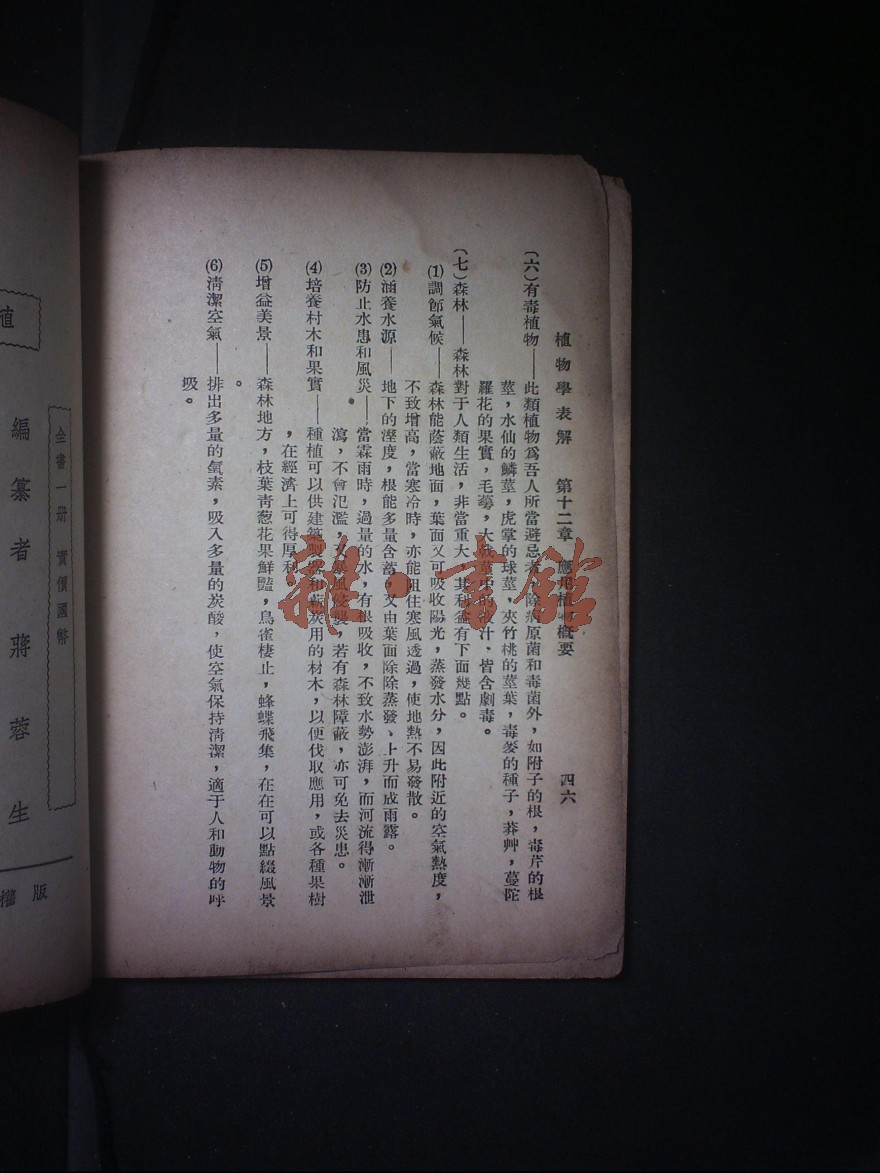 植物學表解　第十二章　應用植物概要　四六
（六）有毒植物——此類植物爲吾人所當避忌者，除病原菌和毒菌外，如附子的根，毒芹的根
莖，水仙的鱗莖，虎掌的球莖，夾竹桃的莖葉，毒麥的種子，莽艸，蔓陀
羅花的果實，毛莨，大戟莖中的液汁，皆含劇毒。
（七）森林——森林對于人類生活，非當重大，其利益有下面幾點。
(1)調節氣候——森林能蔭蔽地面，葉面又可吸收陽光，蒸發水分，因此附近的空氣熱度，
不致增高，當寒冷時，亦能阻住寒風透過，使地熱不易發散。
(2)涵養水源——地下的溼度，根能多量含蓄，又由葉面除除蒸發、上升而成雨露。
(3)防止水患和風災——當霖雨時，過量的水，有根吸收，不致水勢澎湃，而河流得漸漸泄
瀉，不會氾濫，又暴風侵襲，若有森林障蔽，亦可免去災患。
(4)培養村木和果實——種植可以供建築製器和薪炭用的材木，以便伐取應用，或各種果樹
，在經濟上可得厚利。
(5)增益美景——森林地方，枝葉靑葱花果鮮豔，鳥雀棲止，蜂蝶飛集，在在可以點綴風景
。
(6)清潔空氣——排出多量的氧素，吸入多量的炭酸，使空氣保持清潔，適于人和動物的呼
吸。
全書一册　實價國幣
植
編纂者　蔣蓉生
版權
雜·書館